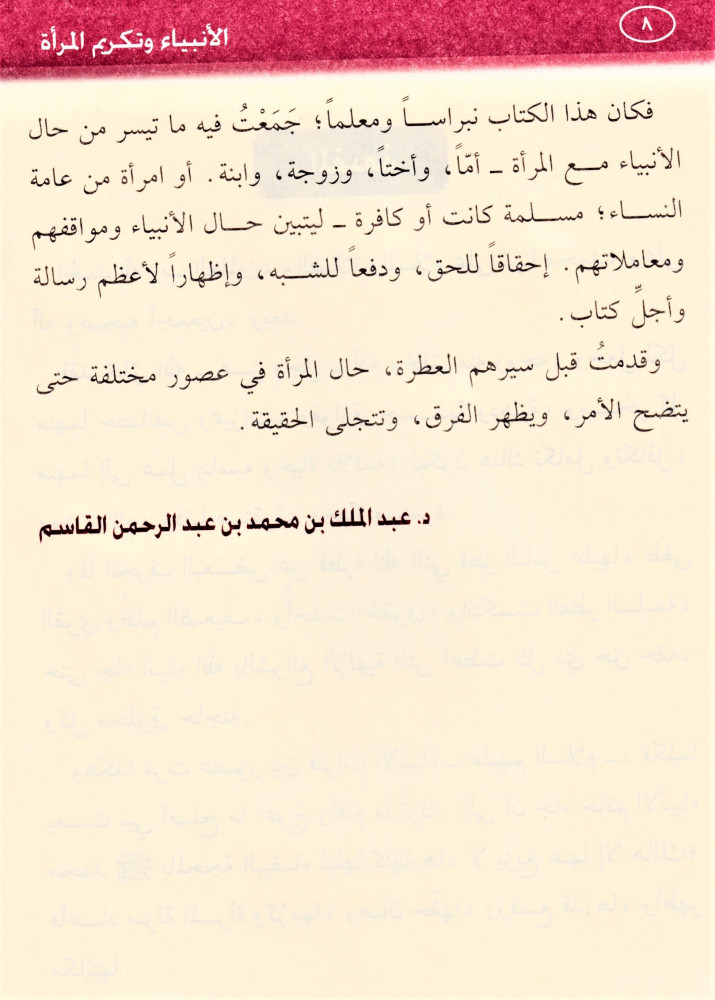 ٨
الأنبياء وتكريم المرأة
فكان هذا الكتاب نبراســاً ومعلماً؛ جَمَعْتُ فيه ما تيسر من حال
الأنبياء مــع المرأة ـ أمّاً، وأختاً، وزوجة، وابنة. أو امرأة من عامة
النساء؛ مسـلمة كانت أو كافرة ـ ليتبين حــال الأنبياء ومواقفهم
ومعاملاتهم. إحقاقاً للحق، ودفعاً للشـبه، وإظهاراً لأعظم رسالة
وأجلِّ كتاب.
وقدمتُ قبل سيرهم العطرة، حال المرأة في عصور مختلفة حتى
يتضح الأمر، ويظهر الفرق، وتتجلى الحقيقة.
د. عبد الملك بن محمد بن عبد الرحمن القاسم